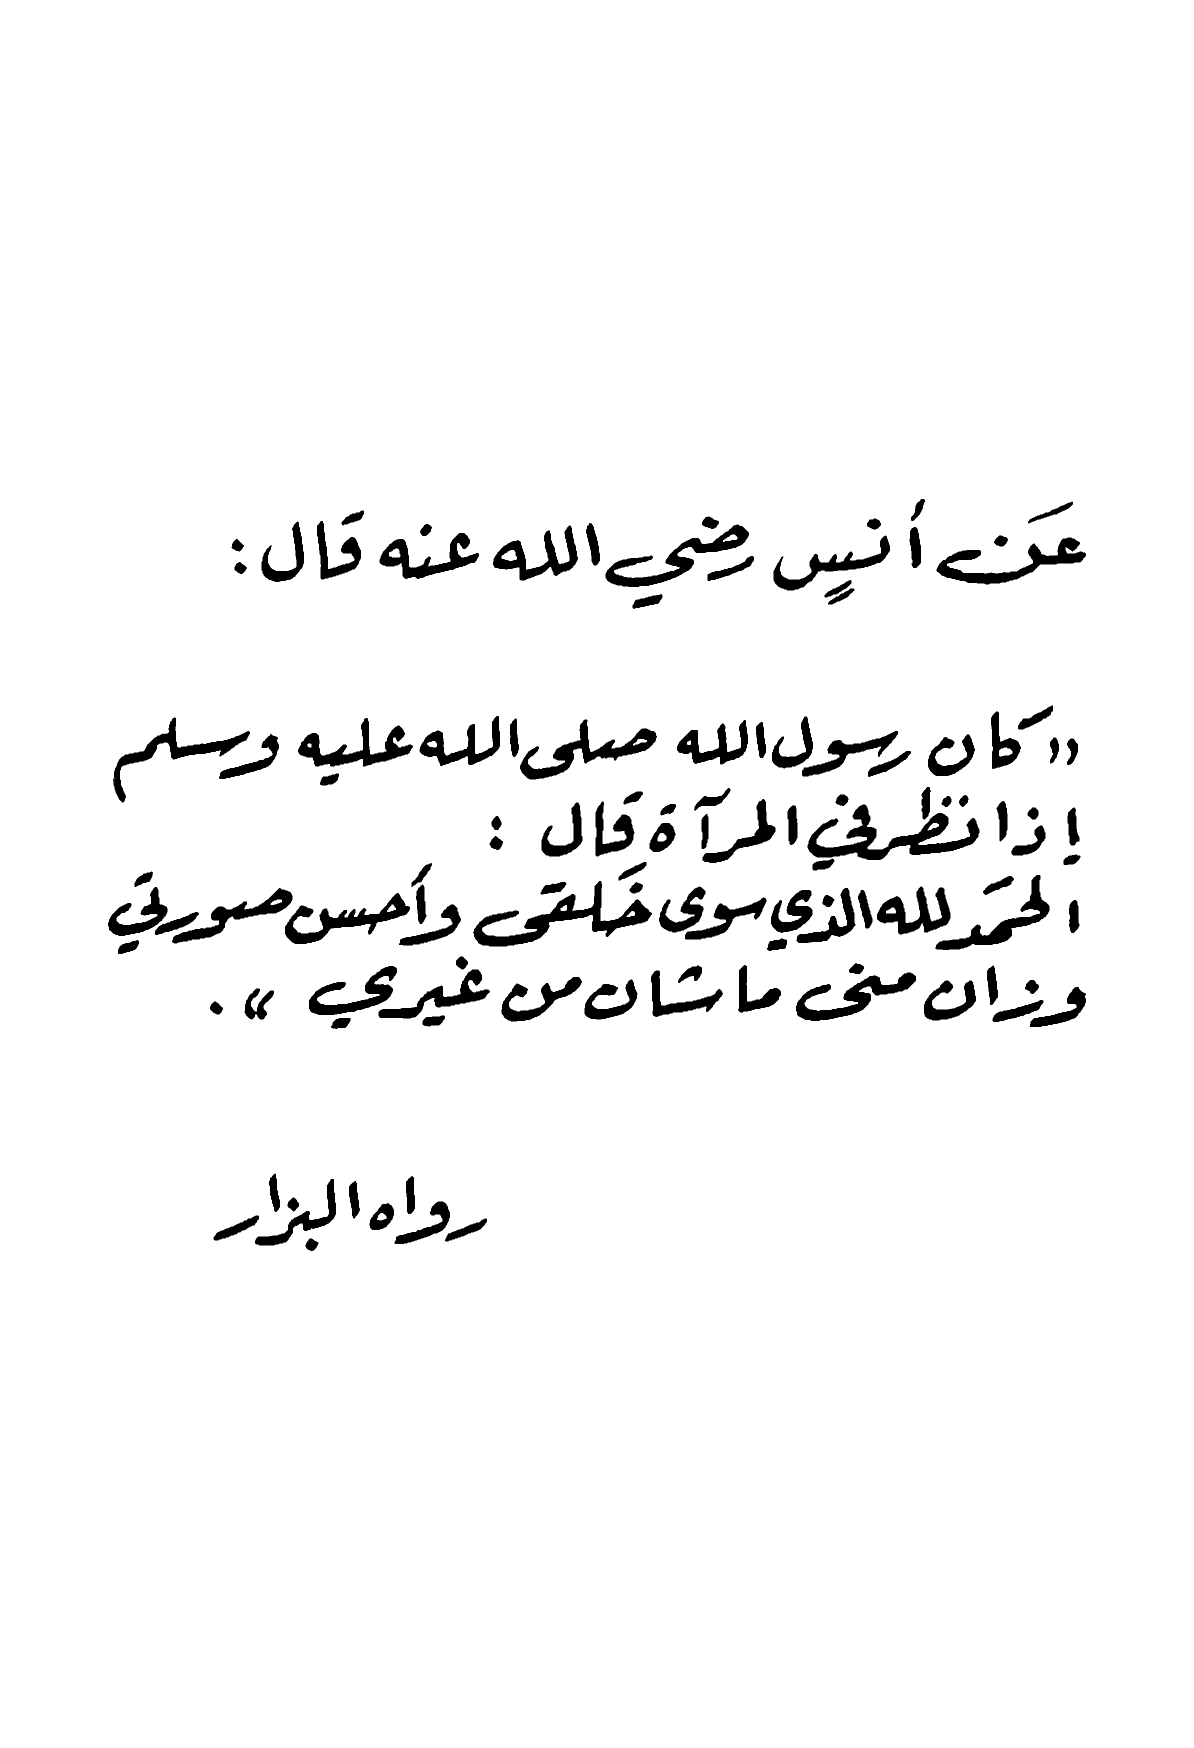 عَن أنسٍ رضي الله عنه قال :
"كان رسول الله صلى الله عليه وسلم
إذا نظر في المرآة قال :
الحمَد لله الذي سوى خَلقى وأحسن صورتي
وزان منى ما شان من غيري " .
رواه البزار